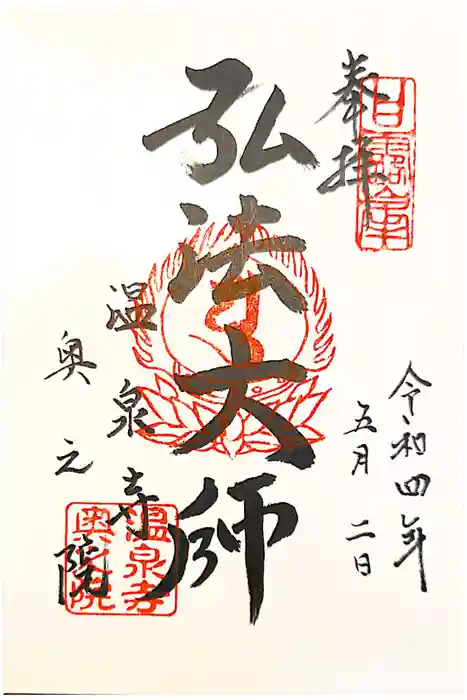 奉拝
令和四年
五月二日
弘法大師
温泉寺
奥之院
温泉寺
奥之院